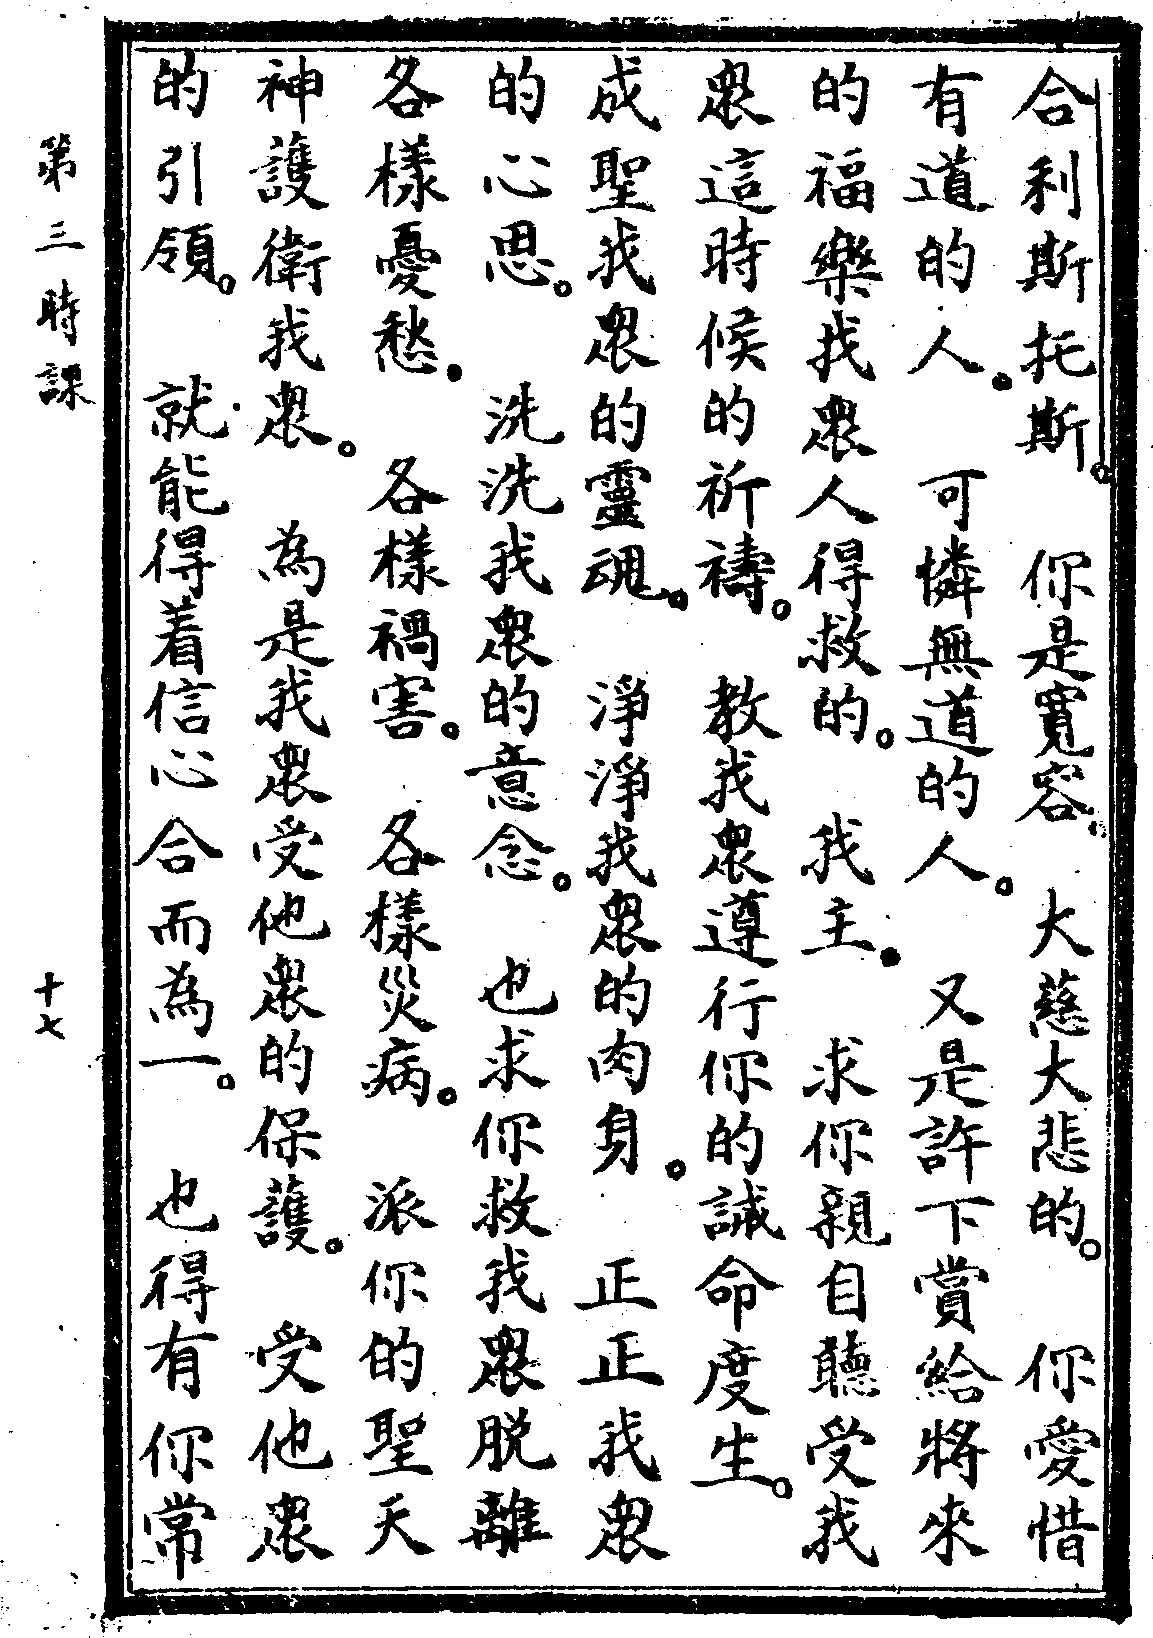 合利斯托斯。你是寬容。大慈大悲的。你愛惜
有道的人。可憐無道的人。又是許下賞給將來
的福樂找衆人得救的。我主。求你親自聽受我
衆這時候的祈禱。教我衆遵行你的誡命度生。
成聖我衆的靈魂。淨淨我衆的肉身。正正我衆
的心思。洗洗我衆的意念。也求你救我衆脱離
各樣憂愁。各樣禍害。各樣災病。派你的聖天
神護衛我衆。為是我衆受他衆的保護。受他衆
的引領。就能得着信心合而為一。也得有你常
第三時課
十七